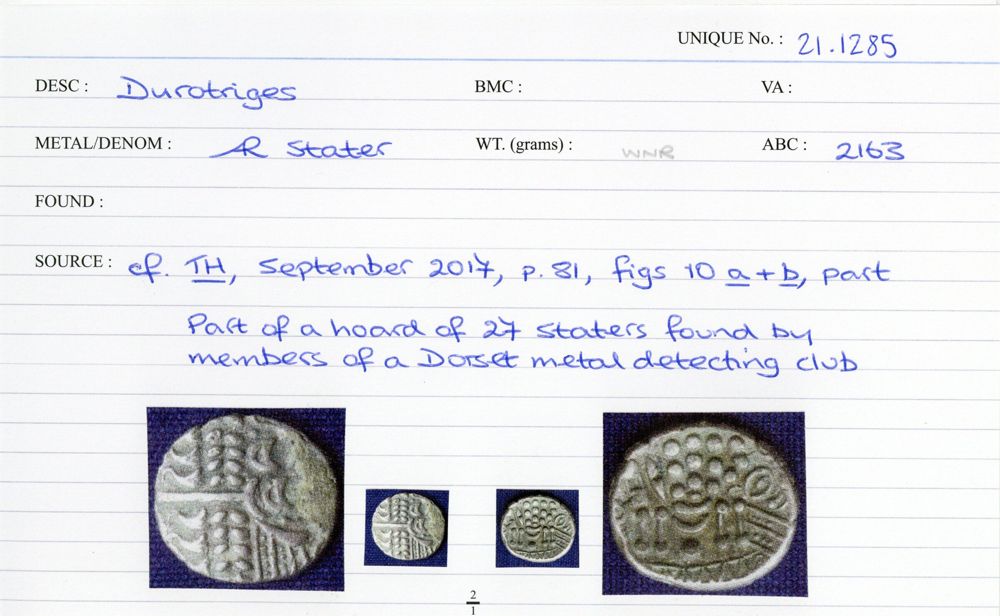 UNIQUE No. : 21.1285
DESC : Durotriges BMC : VA :
METAL/DENOM : AR Stater WT. (grams) : WNR ABC : 2163
FOUND :
SOURCE : cf. TH, September 2017, p. 81, figs 10 a + b, part
Part of a hoard of 27 staters found by
members of a Dorset metal detecting club
2
1